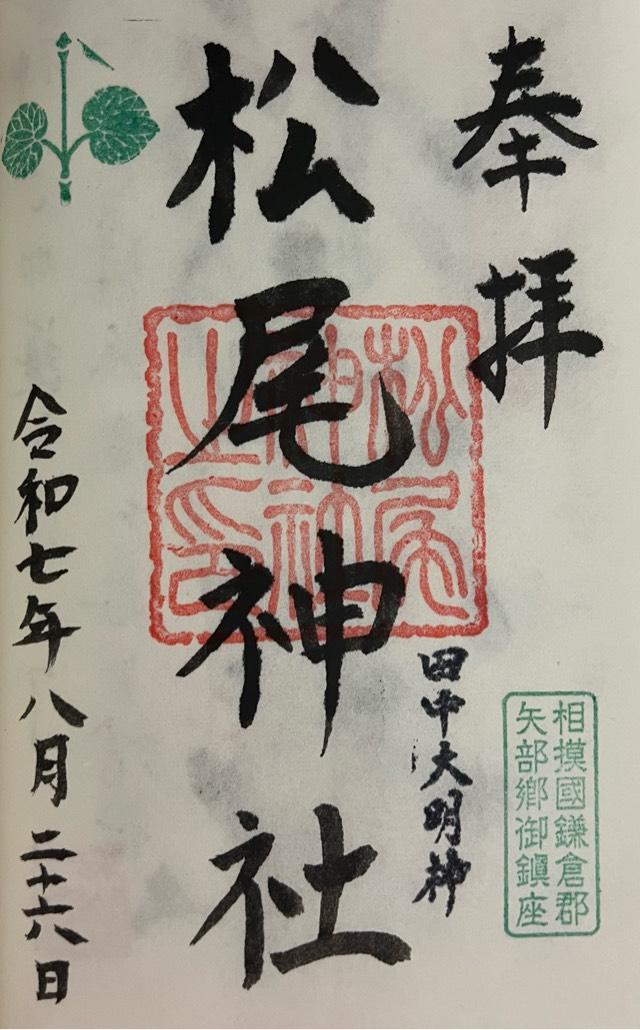 奉拝
相摸國鎌倉郡
矢部郷御鎭座
田中大明神
松尾神社
松尾神社之印
令和七年八月二十六日